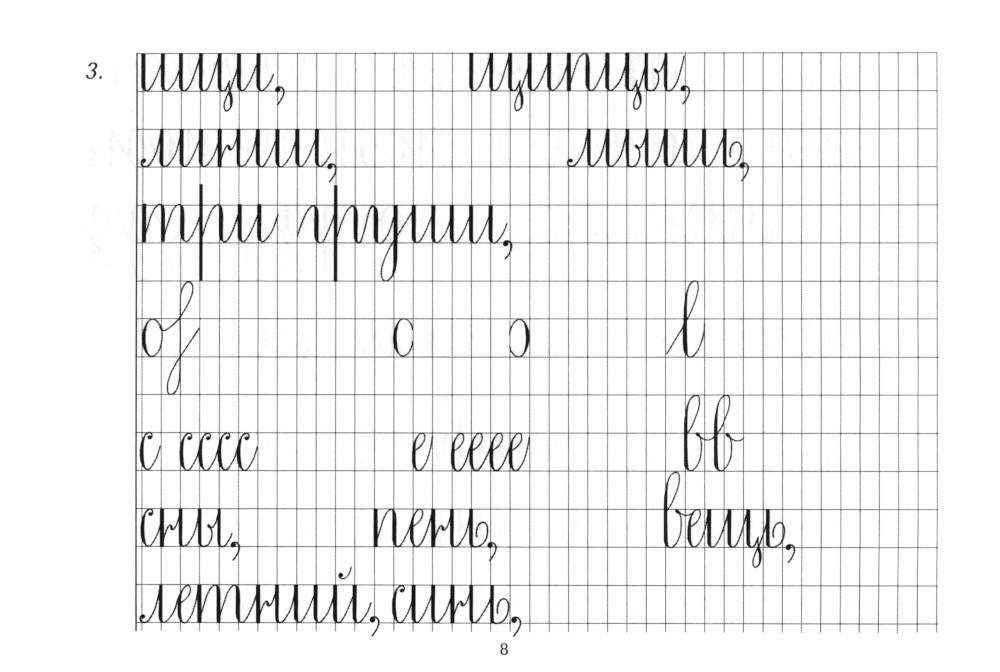 3.
ищи, щипцы,
линии, мышь,
три груши,
о о о
с сссс е ееее вв
сны, пень, вещь,
летний, синь,
8